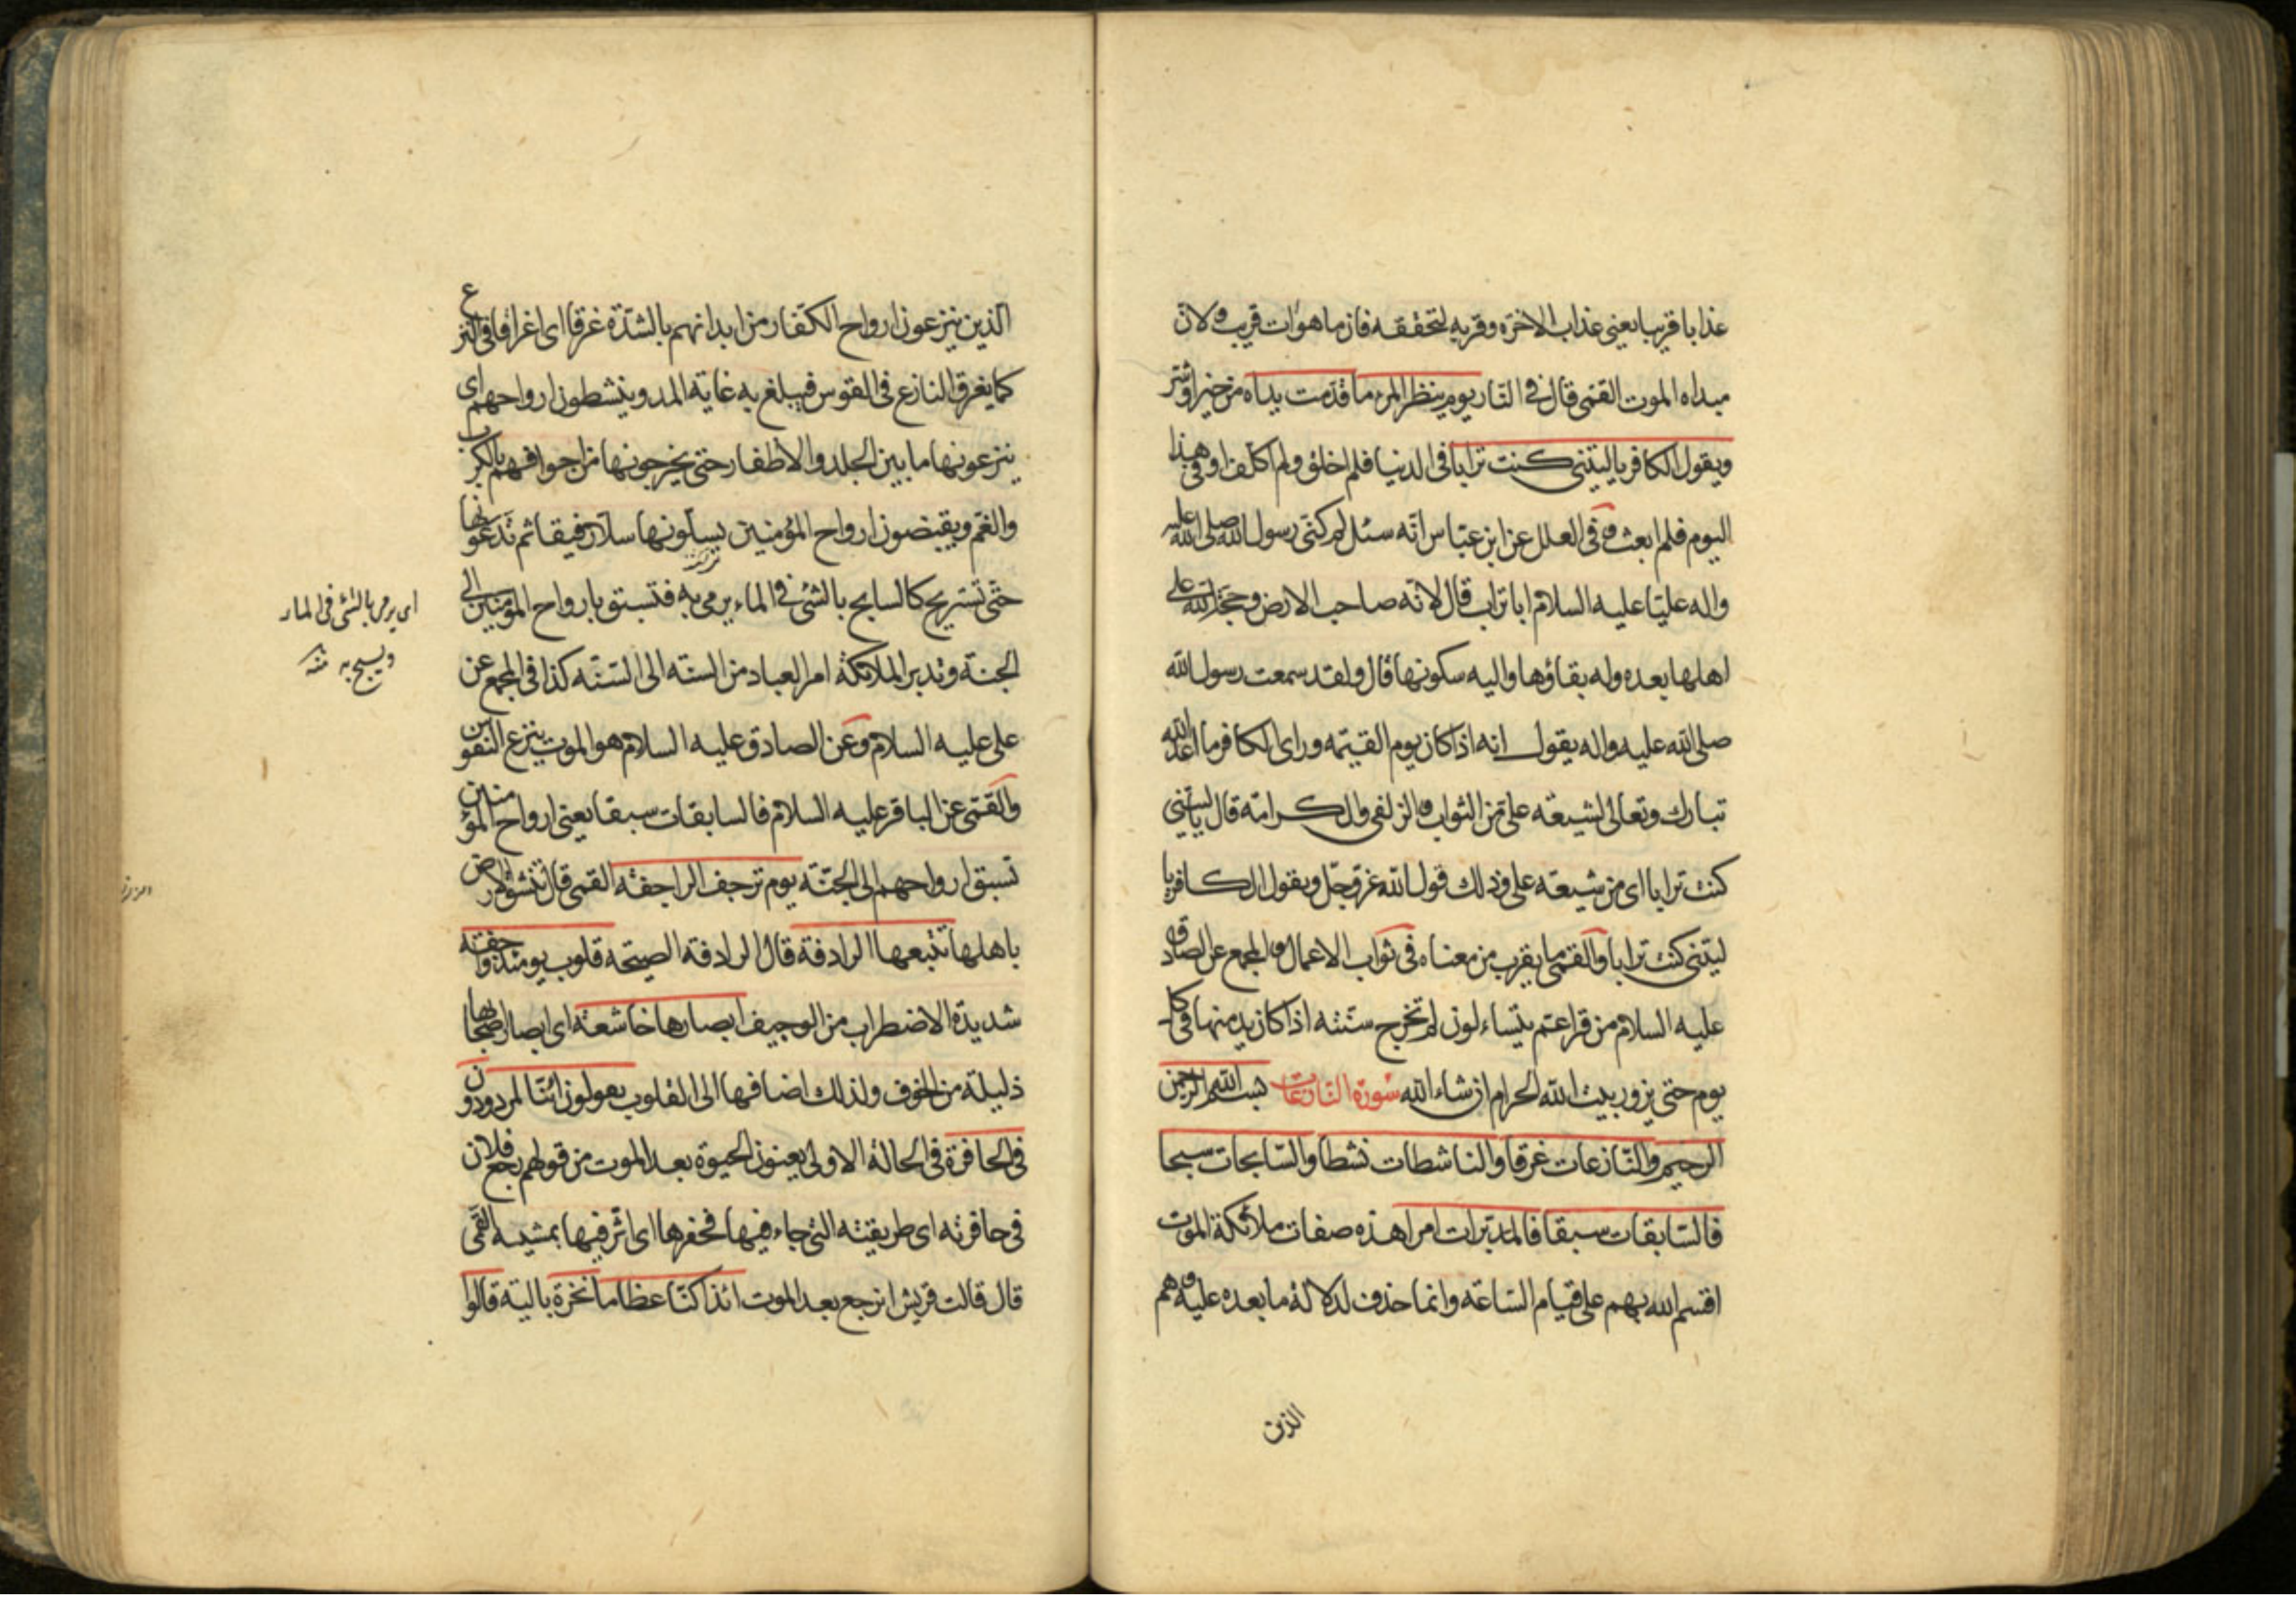 عذابا قريبا يعنى عذاب الاخرة وقربه لتحققه فان ما هو ات قريب ولان
مبداه الموت القمى قال فى النار يوم ينظر المرء ما قدمت يداه من خير او شر
ويقول الكافر يا ليتنى كنت ترابا فى الدنيا فلم اخلق ولم اكلف او فى هذا
اليوم فلم ابعث وفى العلل عن ابن عباس انه سئل لم كنى رسول الله صلى الله عليه
واله عليا عليه السلام ابا تراب قال لانه صاحب الارض وحجة الله على
اهلها بعده وله بقاؤها واليه سكونها قال ولقد سمعت رسول الله
صلى الله عليه واله يقول انه اذا كان يوم القيمة وراى الكافر ما اعد الله
تبارك وتعالى لشيعة على من الثواب والزلفى والكرامة قال يا ليتنى
كنت ترابا اى من شيعة على وذلك قول الله عز وجل ويقول الكافر يا
ليتنى كنت ترابا والقمى ما يقرب من معناه فى ثواب الاعمال والمجمع عن الصادق
عليه السلام من قرا عم يتساءلون لم تخرج سنته اذا كان يدمنها فى كل
يوم حتى يزور بيت الله الحرام ان شاء الله سورة النازعات بسم الله الرحمن
الرحيم والنازعات غرقا والناشطات نشطا والسابحات سبحا
فالسابقات سبقا فالمدبرات امرا هذه صفات ملائكة الموت
اقسم الله بهم على قيام الساعة وانما حذف لدلالة ما بعده عليه وهم
الذين
الذين ينزعون ارواح الكفار من ابدانهم بالشدة غرقا اى اغراقا فى النزع
كما يغرق النازع فى القوس فيبلغ به غاية المد وينشطون ارواحهم اى
ينزعونها ما بين الجلد والاظفار حتى يخرجونها من اجوافهم بالكرب
والغم ويقبضون ارواح المؤمنين يسلونها سلا رفيقا ثم تدعونها
حتى تستريح كالسابح بالشئ فى الماء يرمى به فتسبق بارواح المؤمنين الى
الجنة وتدبر الملائكة امر العباد من السنة الى السنة كذا فى المجمع عن
على عليه السلام وعن الصادق عليه السلام هو الموت ينزع النفوس
والقمى عن الباقر عليه السلام فالسابقات سبقا يعنى ارواح المؤمنين
تسبق ارواحهم الى الجنة يوم ترجف الراجفة القمى قال تنشق الارض
باهلها تتبعها الرادفة قال الرادفة الصيحة قلوب يومئذ واجفة
شديدة الاضطراب من الوجيف ابصارها خاشعة اى ابصار اصحابها
ذليلة من الخوف ولذلك اضافها الى القلوب يقولون ائنا لمردودون
فى الحافرة فى الحالة الاولى يعنون الحيوة بعد الموت من قولهم رجع فلان
فى حافرته اى طريقته التى جاء فيها فحفرها اى اثر فيها بمشيه القمى
قال قالت قريش انرجع بعد الموت ائذا كنا عظاما نخرة بالية قالوا
اى يرمى بالشئ فى الماء
ويسبح به منه